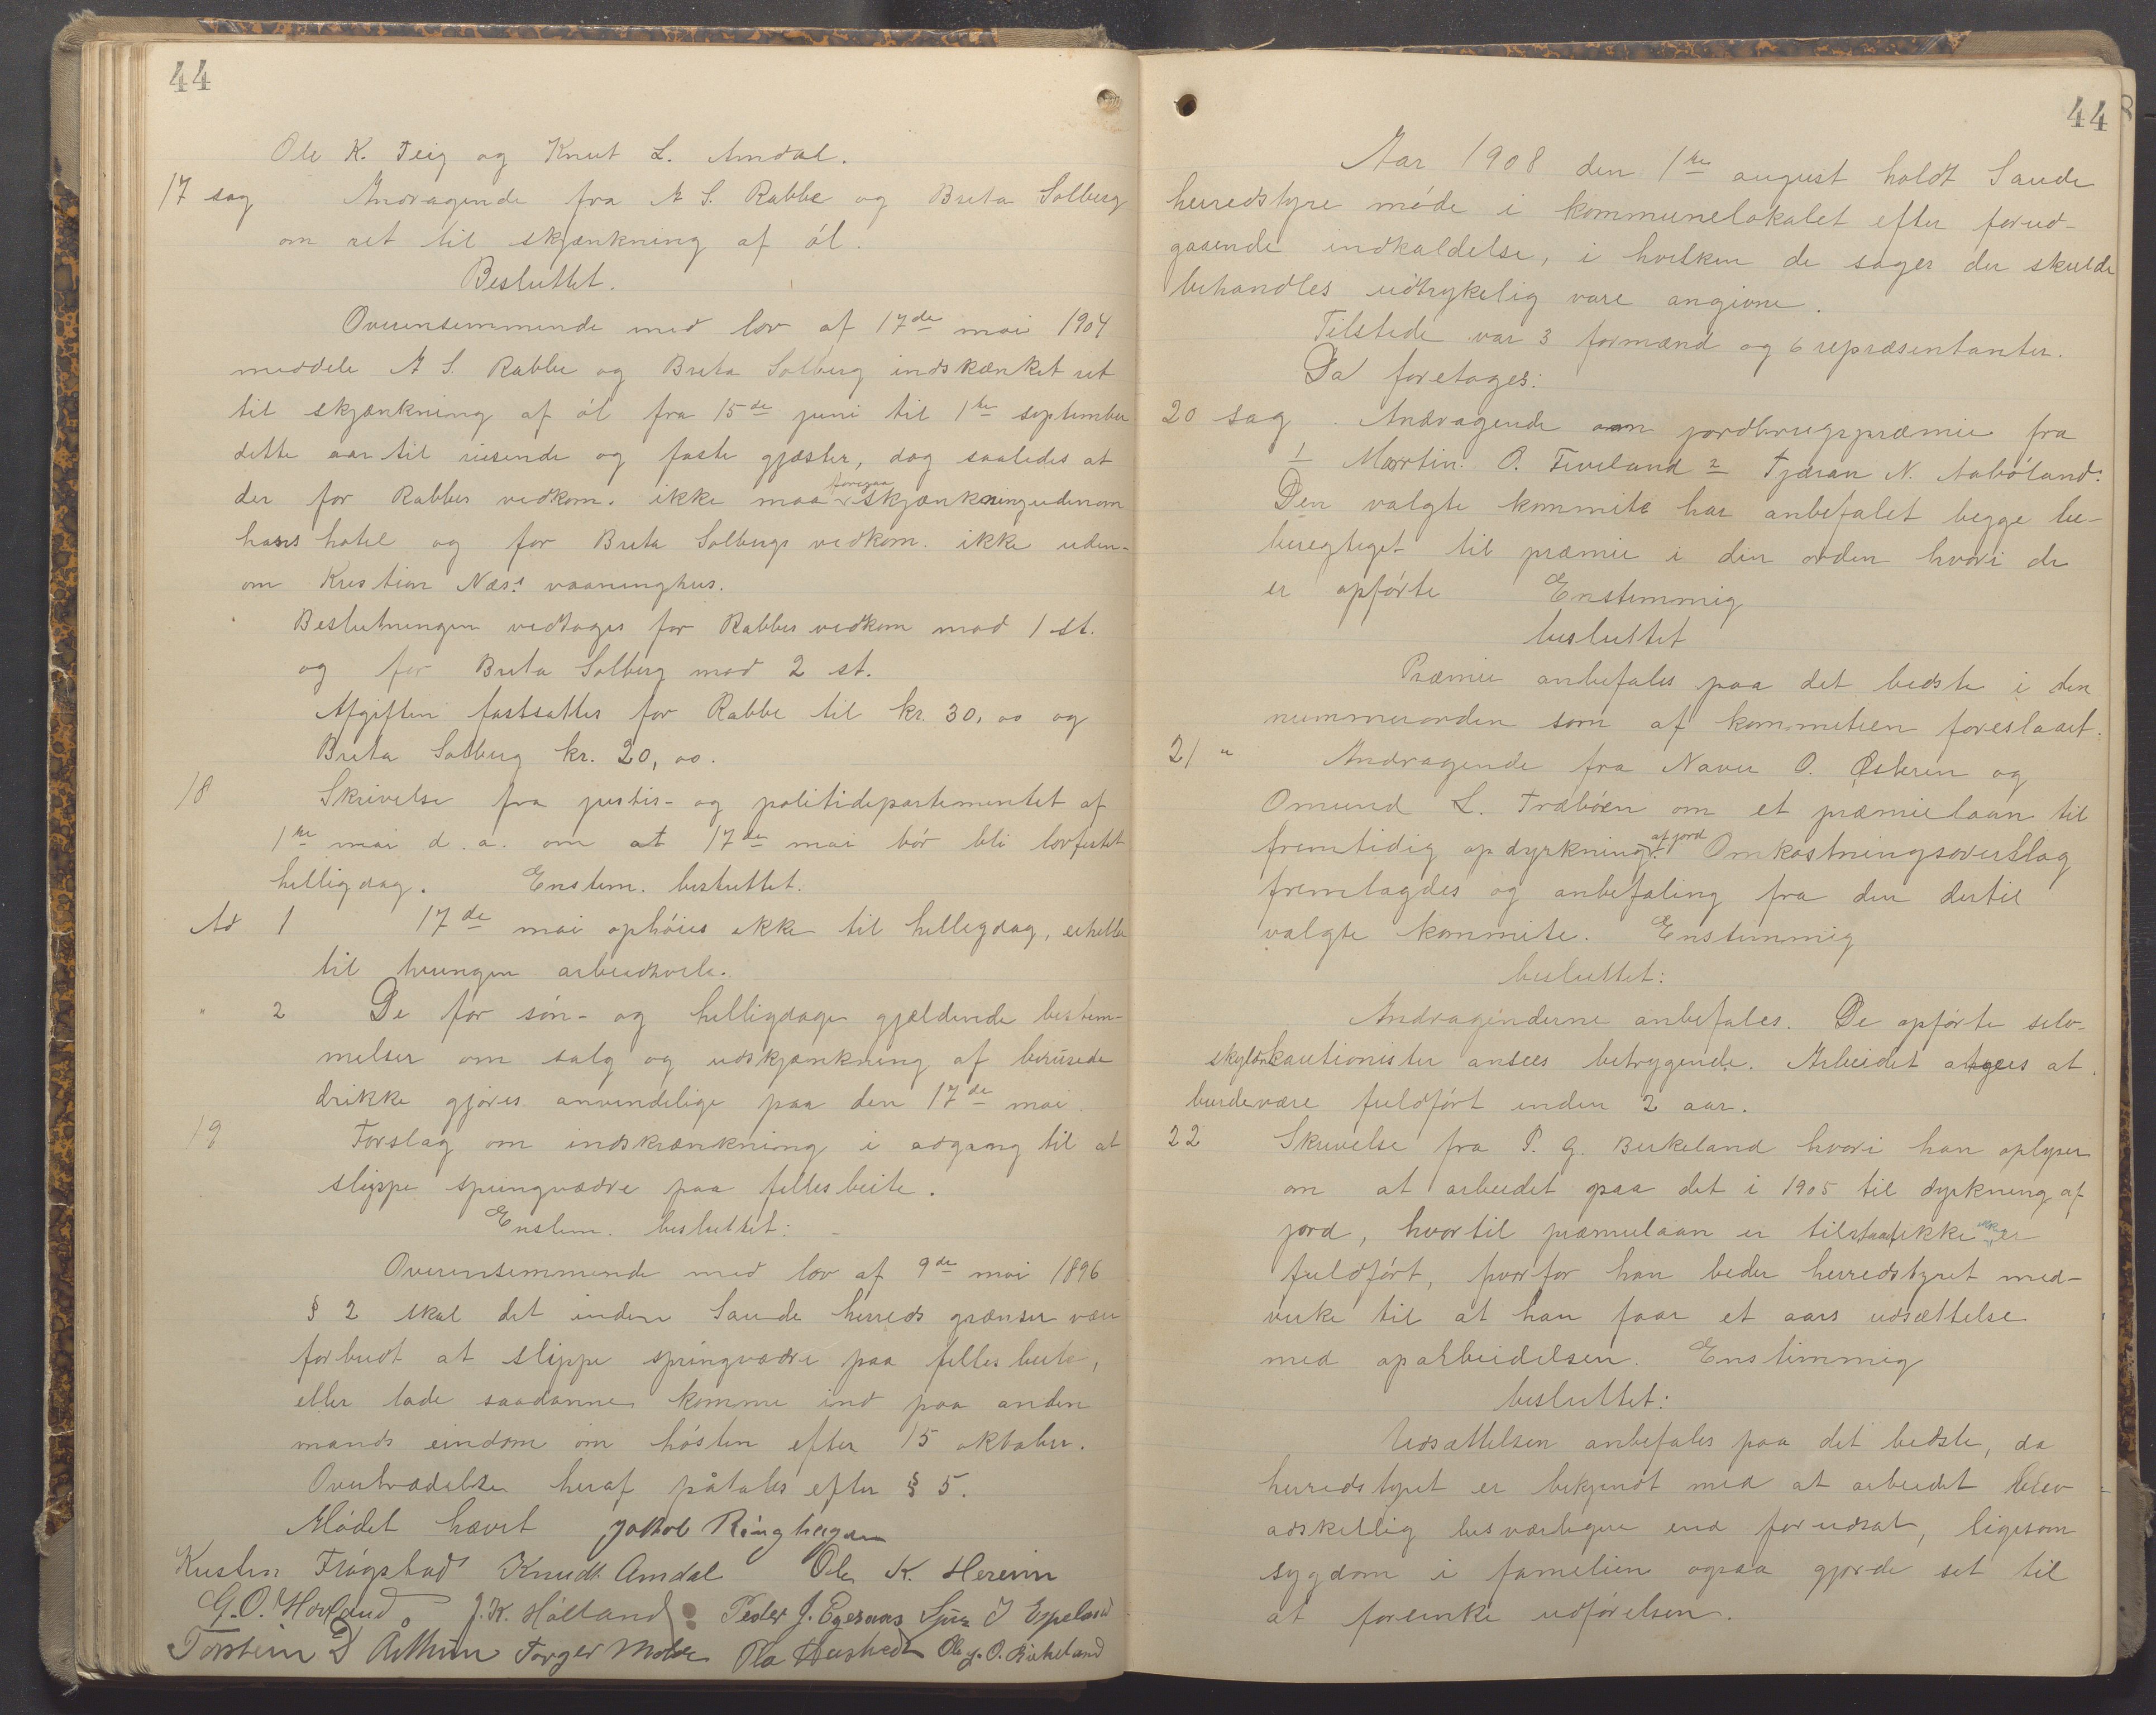 44
Ole K. Teig og Knut L. Amdal.
17 sag Andragende fra A S. Rabbe og Breta Solberg
om ret til skjænkning af öl.
Besluttet.
Overensemmende med lov af 17de mai 1904
meddele A S. Rabbe og Breta Solberg indskænket ret
til skjænkning af öl fra 15de juni til 1ste september
dette aar til reisende og faste gjæster, dog saaledes at
der for Rabbes vedkom. ikke maa foregaa skjænkning udenom
hans hotel og for Breta Solbergs vedkom. ikke uden-
om Kristian Næss vaaninghus.
Beslutningen vedtages for Rabbes vedkom mod 1 st.
og for Breta Solberg mod 2 st.
Afgiften fastsattes for Rabbe til kr. 30,00 og
Breta Solberg kr. 20,00.
18 Skrivelse fra justis- og politidepartementet af
1ste mai d.a. om at 17de mai bör bli lovfestet
helligdag. Enstem. besluttet.
Ad 1 17de mai ophöies ikke til helligdag, eiheller
til tvungen arbeidshvile.
" 2 De for sön- og helligdage gjældende bestem-
melser om salg og udskjænkning af berusede
drikke gjöres anvendelige paa den 17de mai.
19 Forslag om indskrænkning i adgang til at
slippe springvædre paa fellesbeite.
Enstem. besluttet:
Overensemmende med lov af 9de mai 1896
§ 2 skal det inden Saude herreds grænser være
forbudt at slippe springvædre paa fellesbeite,
eller lade saadanne komme ind paa anden
mands eindom om hösten efter 15 oktober.
Overtrædelse heraf påtales efter § 5.
Mödet hævet Jakob Ringhagen
Kristen Frögstad Knudt Amdal Ole K. Hereim
G.O. Hovland J.K. Hölland Peder J. Egeraas J Espeland
Torstein Torger Moln Ola Ole O. Birkeland
44
Aar 1908 den 1ste august holdt Saude
herredstyre möde i kommunelokalet efter forud-
gaaende indkaldelse, i hvilken de sager der skulde
behandles udtrykelig vare angivne.
Tilstede var 3 formænd og 6 repræsentanter.
Da foretages:
20 sag. Andragende om jordbrugspræmie fra
1 Martin O. Tveiland 2 Tjæran N. Aaböland:
Den valgte kommite har anbefalet begge be-
beregtiget til præmie i den orden hvori de
er opförte Enstemmig
besluttet
Præmie anbefales paa det bedste i den
nummerorden som af kommiteen foreslaaet.
21 " Andragende fra Naver O. Østeren og
Omund L. Træböen om et præmielaan til
fremtidig opdyrkning af jord. Omkostningsoverslag
fremlagdes og anbefaling fra den dertil
valgte kommite. Enstemmig
besluttet:
Andragenderne anbefales. De opförte selv-
skyldnerkautionister ansees betryggende. Arbeidet at
burde være fuldfört inden 2 aar.
22 Skrivelse fra P. G. Birkeland hvori han oplyser
om at arbeidet paa det i 1905 til dyrkning af
jord, hvortil præmielaan er tilstaat ikke er
fuldfört, hvorfor han beder herredstyret med-
virke til at han faar et aars udsættelse
med oparbeidelsen. Enstimmig
besluttet:
Udsættelsen anbefales paa det bedste, da
herredstyret er bekjendt med at arbeidet blev
adskellig besværligere end forudsat, ligesom
sygdom i familien ogsaa gjorde set til
at forsinke udförelsen.